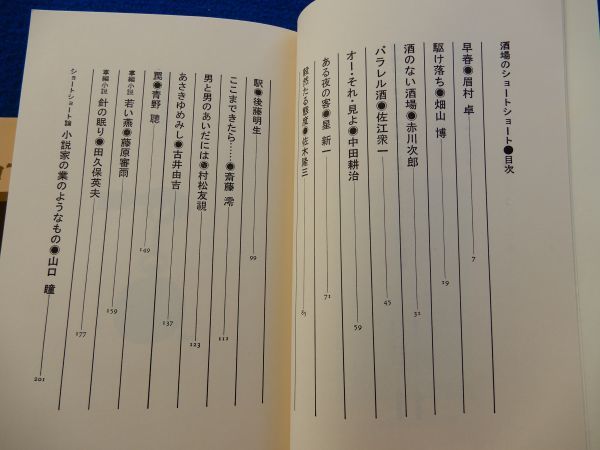 酒場のショートショート●目次
早春◉眉村 卓 7
駆け落ち◉畑山 博 19
酒のない酒場◉赤川次郎 31
パラレル酒◉佐江衆一 45
オー・それ・見よ◉中田耕治 59
ある夜の客◉星 新一 71
毅然たる態度◉佐木隆三 85
駅◉後藤明生 99
ここまできたら……◉斎藤 澪 111
男と男のあいだには◉村松友視 123
あさきゆめみし◉古井由吉 137
罠◉青野 聰 149
掌編小説 若い燕◉藤原審爾 159
掌編小説 針の眠り◉田久保英夫 177
ショートショート論 小説家の業のようなもの◉山口 瞳 201